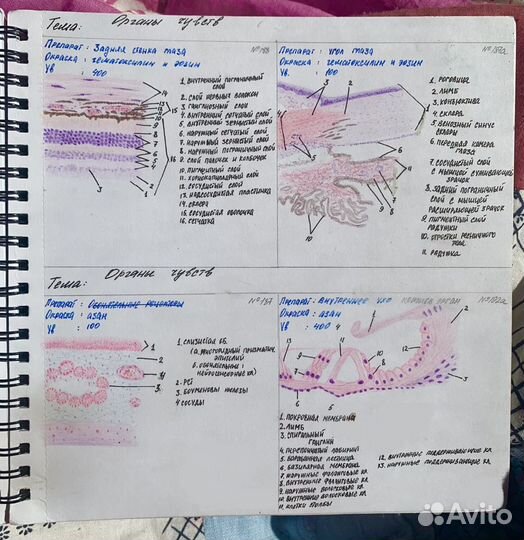 Тема: Органы чувств
Препарат: Задняя стенка глаза
Окраска: гематоксилин и эозин
Ув 400
1. внутренний пограничный слой
2. слой нервных волокон
3. ганглиозный слой
4. внутренний сетчатый слой
5. внутренний зернистый слой
6. наружный сетчатый слой
7. наружный зернистый слой
8. наружный пограничный слой
9. слой палочек и колбочек
10. пигментный слой
11. хориокапиллярный слой
12. сосудистый слой
13. надсосудистая пластинка
14. склера
15. сосудистая оболочка
16. сетчатка
Препарат: угол глаза
Окраска: гематоксилин и эозин
Ув 100
1. роговица
2. лимб
3. конъюктива
4. склера
5. венозный синус
склеры
6. передняя камера
глаза
7. сосудистый слой
с мышцей суживающей
зрачок
8. задний пограничный
слой с мышцей
расширяющей зрачок
9. пигментный слой
радужки
10. отростки ресничного
тела
11. радужка
Тема: Органы чувств
Препарат: Обонятельные рецепторы
№ 137
Окраска: азан
Ув 100
1. слизистая об.
2. РСТ
3. боуменовы железы
4 сосуды
Препарат: внутреннее ухо кортиев орган
Окраска: азан
Ув 400
1. покровная мембрана
2. лимб
3. спиральный
ганглий
4. перепончатый лабиринт
5. барабанная лестница
6. базилярная мембрана
7. наружные фаланговые кл
8. внутренние фаланговые кл
9. наружные волосковые кл
10. внутренние волосковые кл
11. клетки столбы
12. внутренние поддерживающие кл
13. наружные поддерживающие кл
Avito